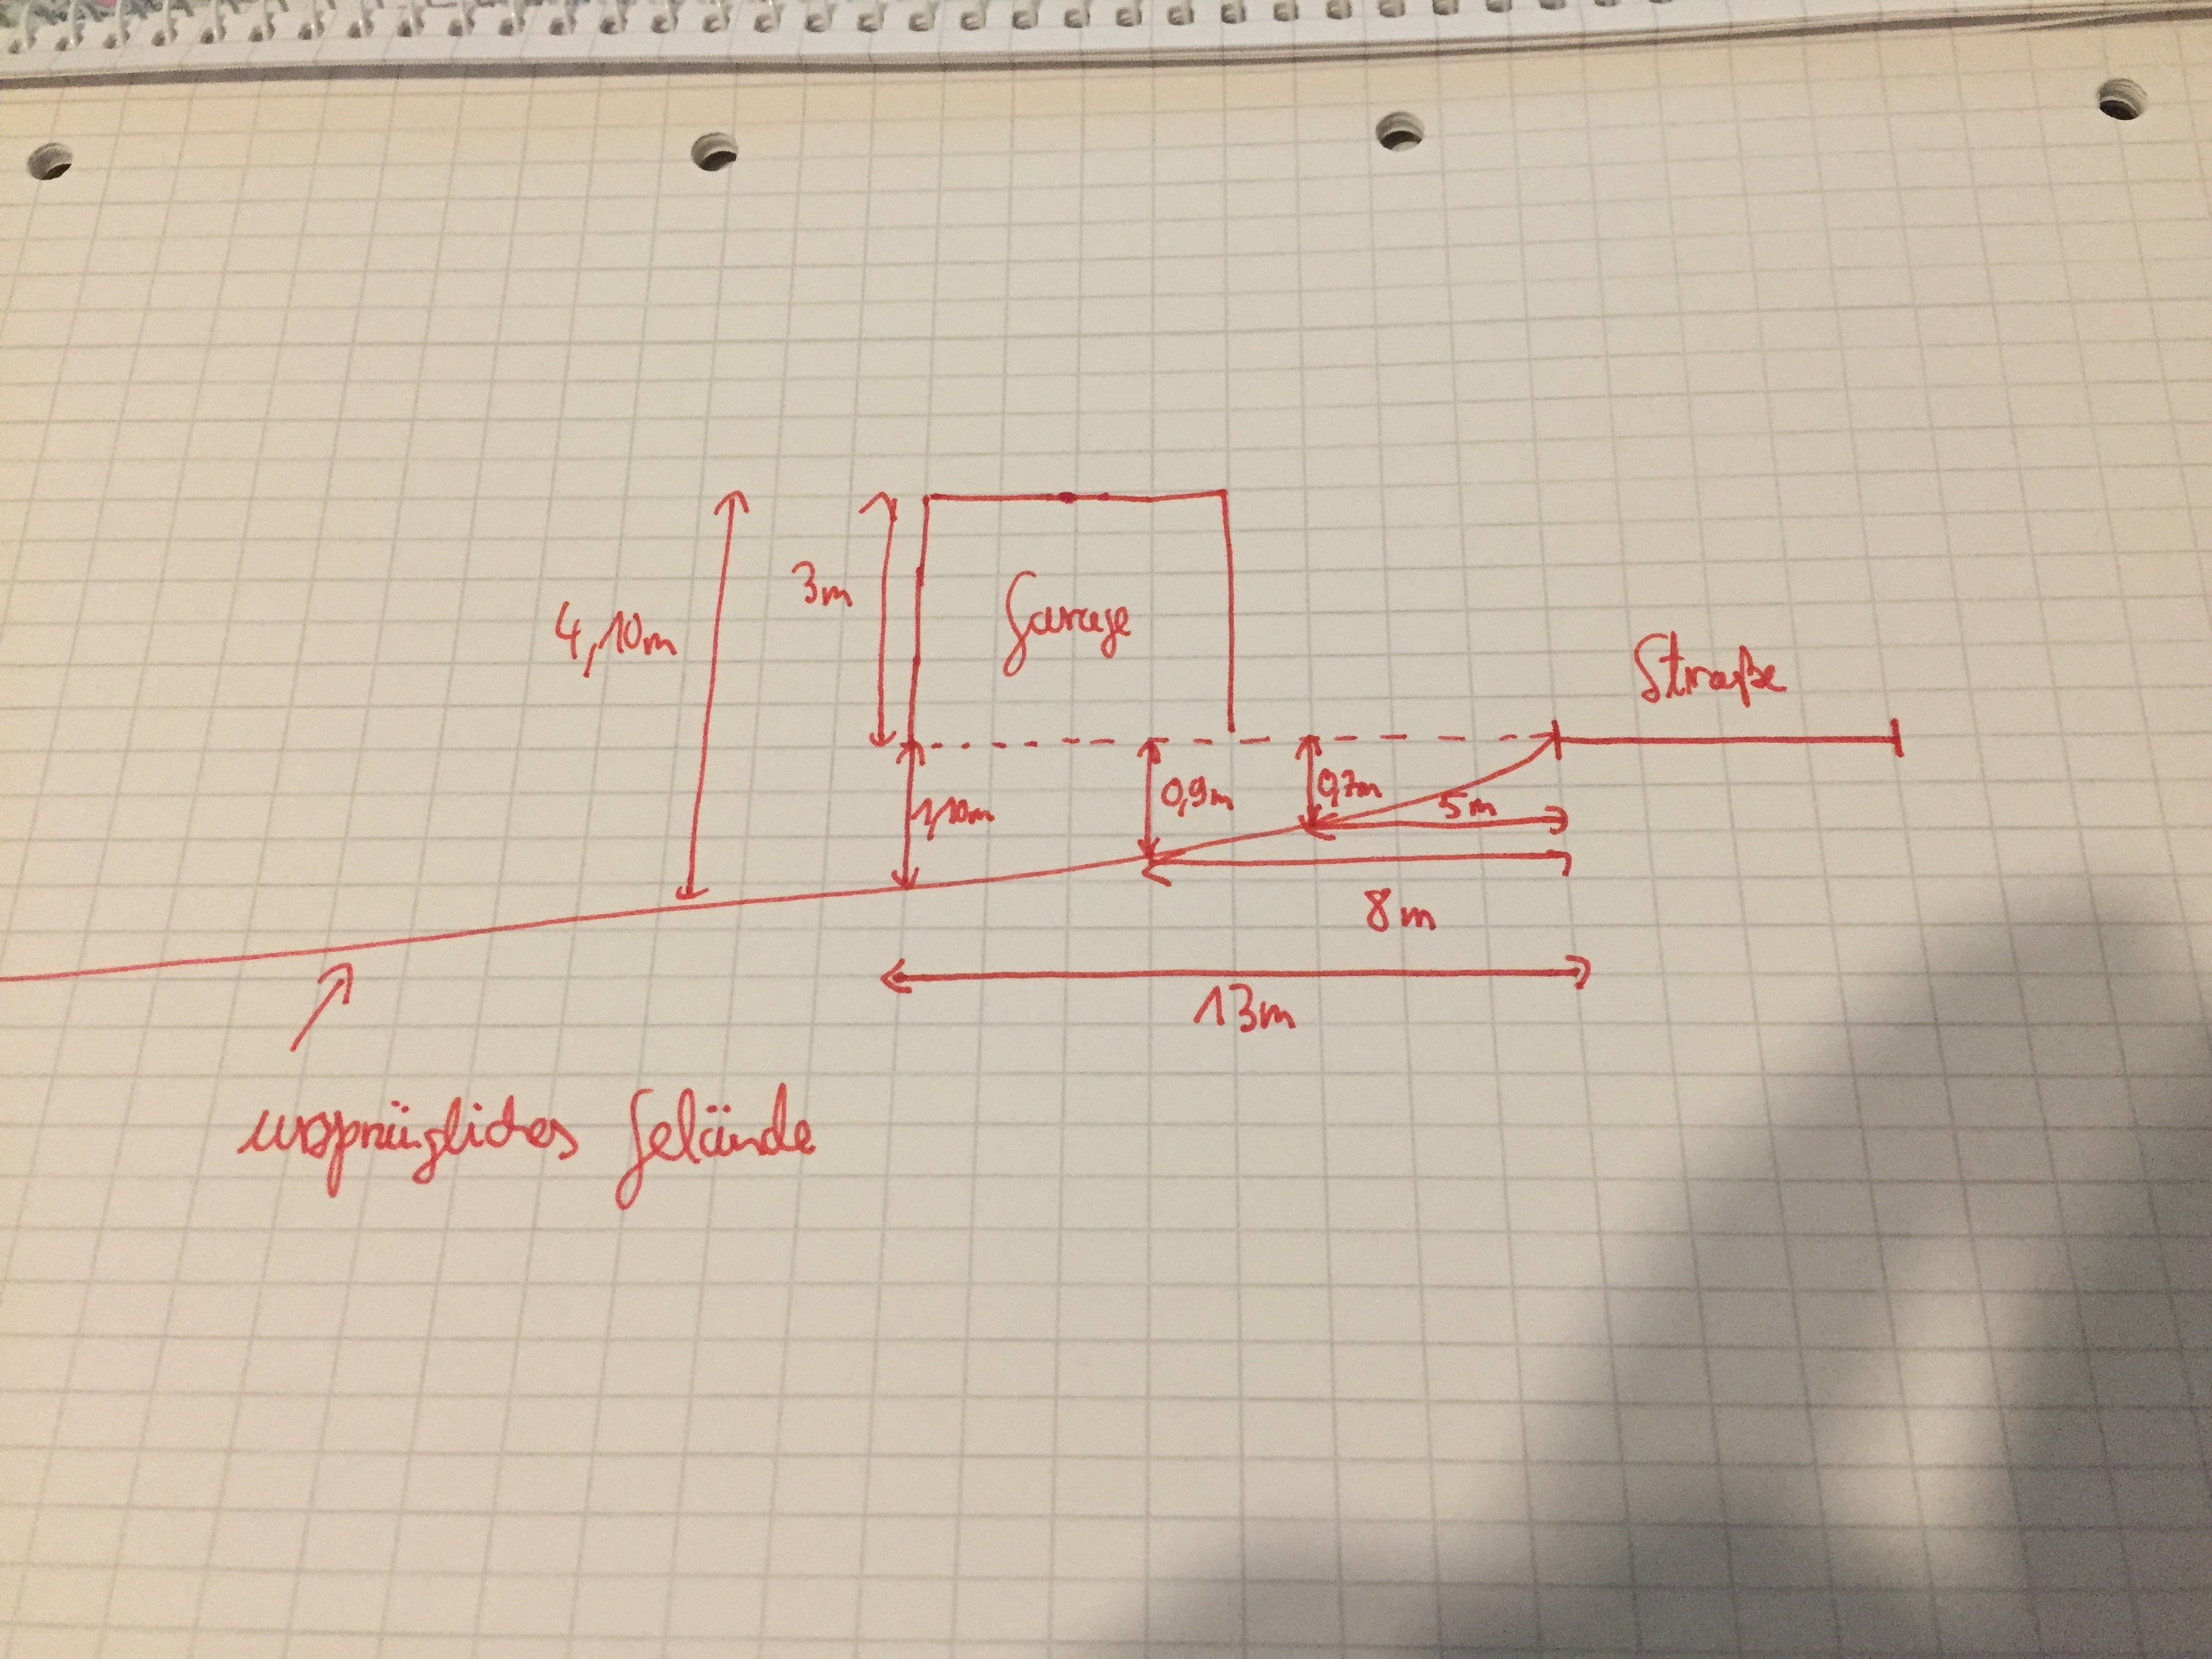 3m
4,10m
Garage
Straße
0,9m
0,7m
1,10m
5m
8m
13m
ursprügliches Gelände